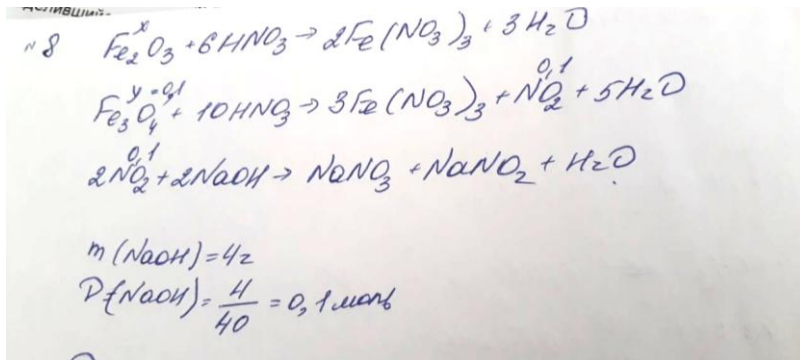 деливший
x
№8 Fe₂O₃ + 6HNO₃ → 2Fe(NO₃)₃ + 3H₂O
y = 0,1 0,1
Fe₃O₄ + 10HNO₃ → 3Fe(NO₃)₃ + NO₂ + 5H₂O
0,1
2NO₂ + 2NaOH → NaNO₃ + NaNO₂ + H₂O
m(NaOH) = 4г
υ(NaOH) = 4/40 = 0,1 моль